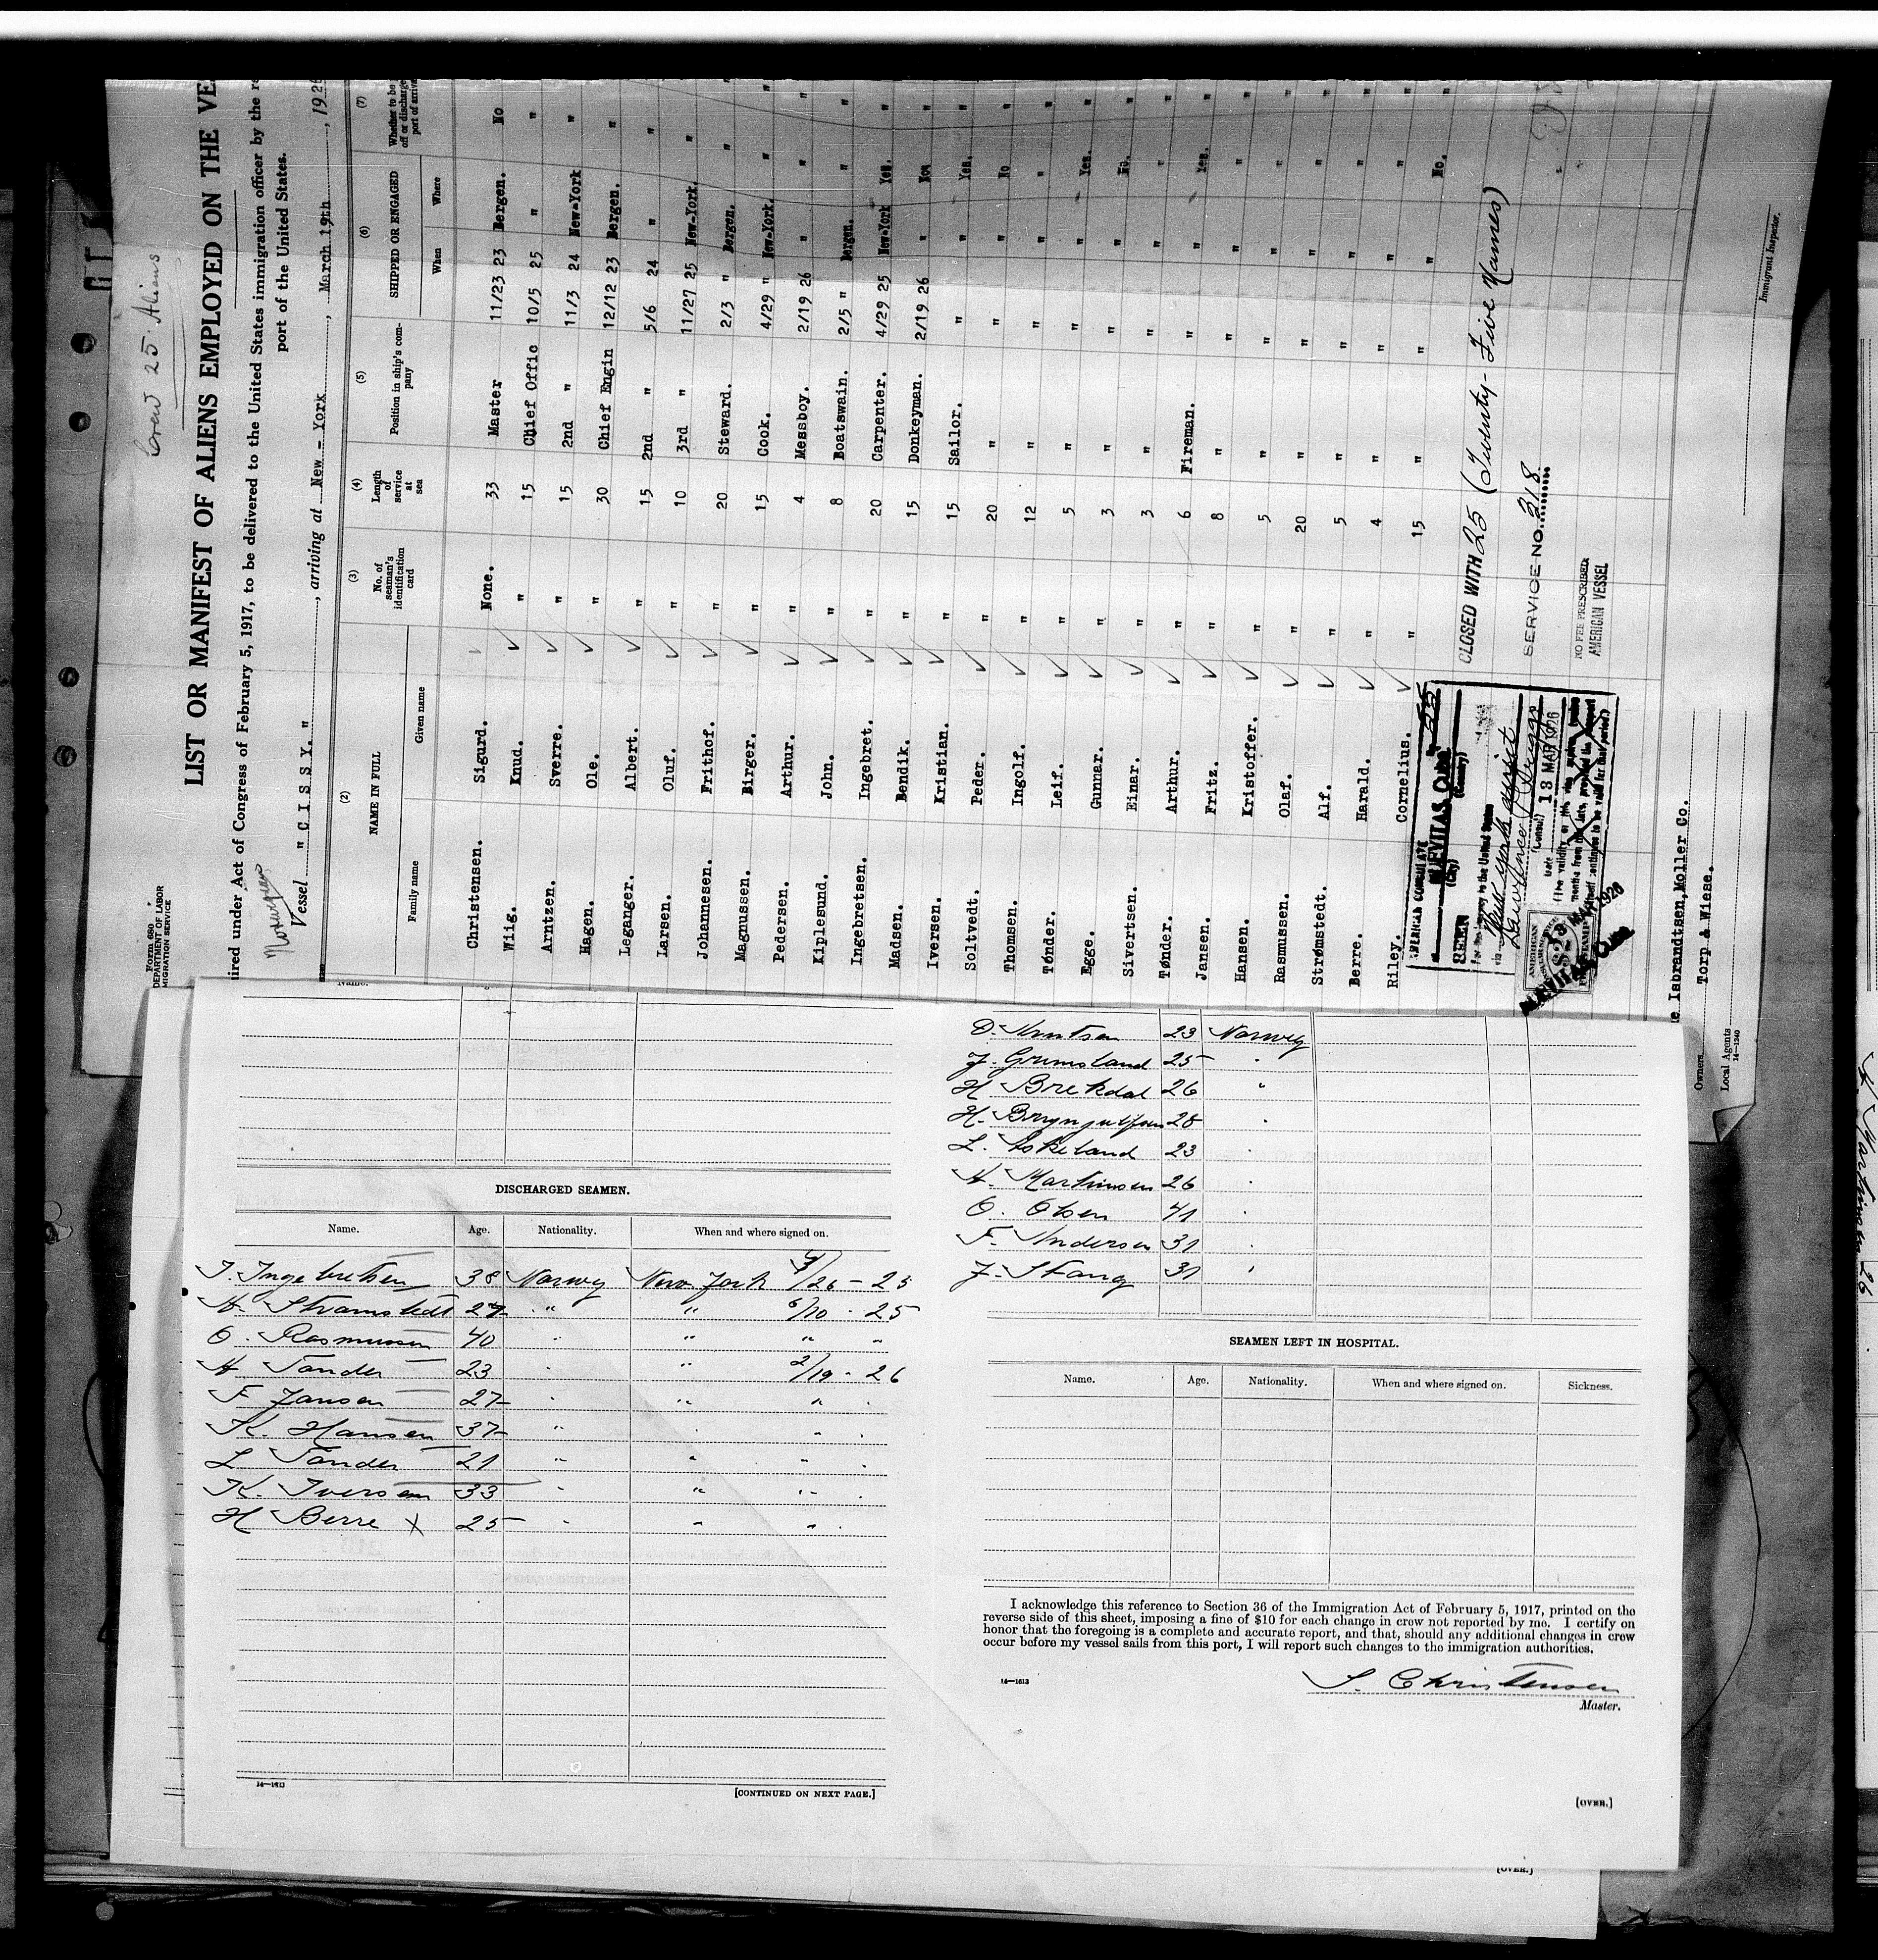 Crew 25 Aliens
Form 680
DEPARTMENT OF LABOR
MIGRATION SERVICE
LIST OR MANIFEST OF ALIENS EMPLOYED ON THE VE
ired under Act of Congress of February 5, 1917, to be delivered to the United States immigration officer by the re
port of the United States.
Norwegian
Vessel " C I S S Y. " , arriving at New - York , March 19th , 192
(2) (3) (4) (5) (6) (7)
NAME IN FULL No. of seaman's identification card Length of service at sea Position in ship's company SHIPPED OR ENGAGED Whether to be off or discharge port of arriva
Family name Given name When Where
Christensen. Sigurd. None. 33 Master 11/23 23 Bergen. No
Wiig. Knud. " 15 Chief Offic 10/5 25 " "
Arntzen. Sverre. " 15 2nd " 11/3 24 New-York "
Hagen. Ole. " 30 Chief Engin 12/12 23 Bergen. "
Leganger. Albert. " 15 2nd " 5/6 24 " "
Larsen. Oluf. " 10 3rd " 11/27 25 New-York. "
Johannesen. Frithof. " 20 Steward. 2/3 " Bergen. "
Magnussen. Birger. " 15 Cook. 4/29 " New-York. "
Pedersen. Arthur. " 4 Messboy. 2/19 26 " "
Kiplesund. John. " 8 Boatswain. 2/5 " Bergen. "
Ingebretsen. Ingebret. " 20 Carpenter. 4/29 25 New-York Yes. "
Madsen. Bendik. " 15 Donkeyman. 2/19 26 " Noo "
Iversen. Kristian. " 15 Sailor. " " Yes. "
Soltvedt. Peder. " 20 " " " No "
Thomsen. Ingolf. " 12 " " " " "
Tønder. Leif. " 5 " " " Yes. "
Egge. Gunnar. " 3 " " " No. "
Sivertsen. Einar. " 3 " " " " "
Tønder. Arthur. " 6 Fireman. " " Yes. "
Jansen. Fritz. " 8 " " " " "
Hansen. Kristoffer. " 5 " " " " "
Rasmussen. Olaf. " 20 " " " " "
Strømstedt. Alf. " 5 " " " " "
Berre. Harald. " 4 " " " " "
Riley. Cornelius. " 15 " " " No. "
CLOSED WITH 25 (Twenty-Five Names)
SERVICE NO. 318
NO FEE PRESCRIBED
AMERICAN VESSEL
AMERICAN CONSULATE
NUEVITAS CUBA
(City) (Country)
SEEN
For the journey to the United States
via New York
(Consul)
Date 13 MAR 1926
NUEVITAS CUBA
Immigrant Inspector.
Owners Isbrandtsen,Moller Co.
Local Agents Torp & Wiese.
14—1240
Name.
DISCHARGED SEAMEN.
Name. Age. Nationality. When and where signed on.
I. Ingebretsen 38 Norway New York 4/26 - 25
A. Strømstedt 27 " " 6/10 - 25
O. Rasmussen 40 " " " "
A Tønder 23 " " 2/19 - 26
F Jansen 27 " " " "
K. Hansen 37 " " " "
L Tønder 21 " " " "
K. Iversen 33 " " " "
H Berre x 25 " " " "
14—1613
[CONTINUED ON NEXT PAGE.]
D. Knutsen 23 Norway
J. Grimsland 25 "
H Brekdal 26 "
H. 28 "
L. 23 "
A. Martinsen 26 "
O. Olsen 41 "
F. Andersen 31 "
J. Stang 31 "
SEAMEN LEFT IN HOSPITAL.
Name. Age. Nationality. When and where signed on. Sickness.
I acknowledge this reference to Section 36 of the Immigration Act of February 5, 1917, printed on the
reverse side of this sheet, imposing a fine of $10 for each change in crew not reported by me. I certify on
honor that the foregoing is a complete and accurate report, and that, should any additional changes in crew
occur before my vessel sails from this port, I will report such changes to the immigration authorities.
14—1613
S. Christensen
Master.
[OVER.]
[OVER.]
A. Martinsen 26